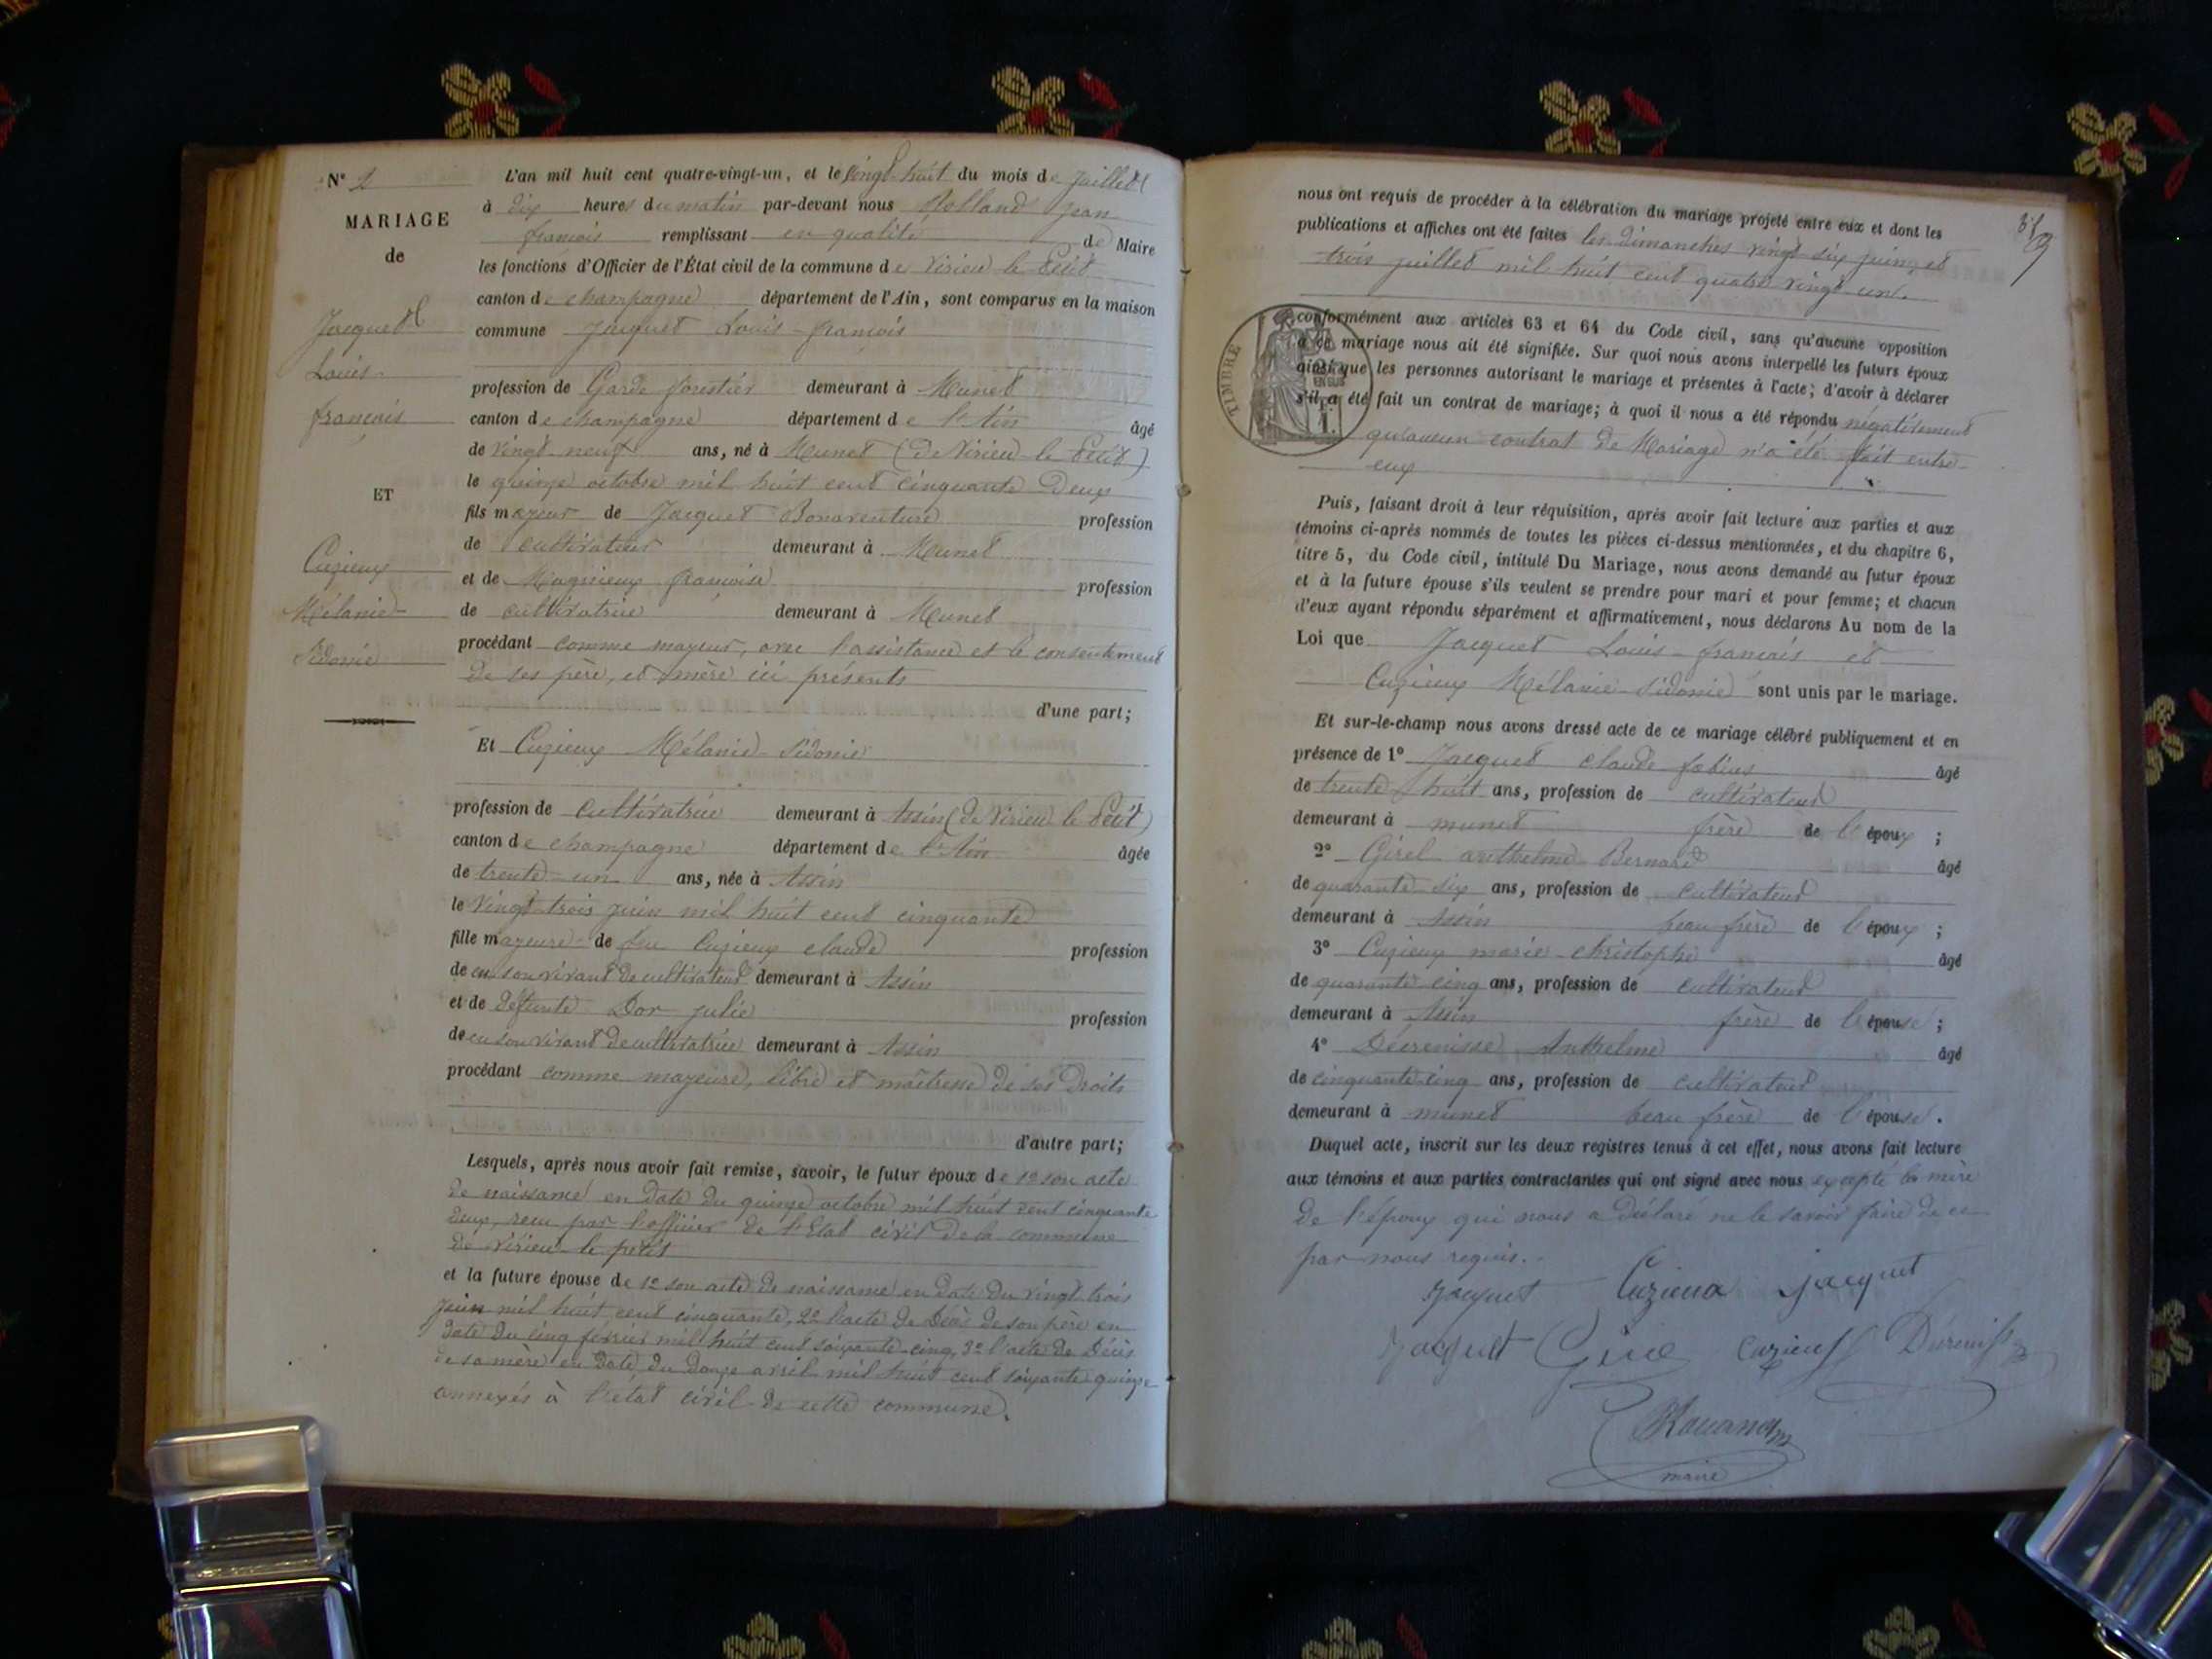 N° 2
MARIAGE
de
Jacquet
Louis-
françois
ET
Cuzieux
Mélanie-
Sidonie
L'an mil huit cent quatre-vingt-un, et le vingt-huit du mois de juillet
à dix heures du matin par-devant nous Rolland Jean
françois remplissant en qualité de Maire
les fonctions d'Officier de l'État civil de la commune de Virieu le Petit
canton de champagne département de l'Ain, sont comparus en la maison
commune Jacquet Louis-françois
profession de Garde forestier demeurant à Munet
canton de champagne département de l'Ain âgé
de vingt-neuf ans, né à Munet (de Virieu-le Petit)
le quinze octobre mil huit cent cinquante Deux
fils mayeur de Jacquet Bonaventure profession
de cultivateur demeurant à Munet
et de françoise profession
de cultivatrice demeurant à Munet
procédant comme mayeur, avec l'assistance et le consentement
De ses père, et mère ici présents
d'une part;
Et Cuzieux Mélanie-Sidonie
profession de cultivatrice demeurant à Assin (de Virieu le Petit)
canton de champagne département de l'Ain âgée
de trente-un ans, née à Assin
le vingt-trois juin mil huit cent cinquante
fille mayeure de feu Cuzieux claude profession
de en son vivant de cultivateur demeurant à Assin
et de défunte Dor julie profession
de en son vivant de cultivatrice demeurant à Assin
procédant comme mayeure, libre et maîtresse de ses Droits
d'autre part;
Lesquels, après nous avoir fait remise, savoir, le futur époux de 1° son acte
de naissance en date du quinze octobre mil huit cent cinquante
deux, reçu par l'officier de l'Etat civil de la commune
de Virieu-le petit
et la future épouse de 1° son acte de naissance en date du vingt trois
juin mil huit cent cinquante, 2° l'acte de Décès de son père en
date du cinq février mil huit cent soixante-cinq, 3° l'acte de Décès
de sa mère en date du douze avril mil huit cent soixante quinze
annexés à l'état civil de cette commune.
nous ont requis de procéder à la célébration du mariage projeté entre eux et dont les
publications et affiches ont été faites les dimanches vingt six juin, et
trois juillet mil huit cent quatre vingt un.
conformément aux articles 63 et 64 du Code civil, sans qu'aucune opposition
à ce mariage nous ait été signifiée. Sur quoi nous avons interpellé les futurs époux
ainsi que les personnes autorisant le mariage et présentes à l'acte; d'avoir à déclarer
s'il a été fait un contrat de mariage; à quoi il nous a été répondu négativement
qu'aucun contrat de Mariage n'a été fait entre
eux
TIMBRE
EN SUS
Puis, faisant droit à leur réquisition, après avoir fait lecture aux parties et aux
témoins ci-après nommés de toutes les pièces ci-dessus mentionnées, et du chapitre 6,
titre 5, du Code civil, intitulé Du Mariage, nous avons demandé au futur époux
et à la future épouse s'ils veulent se prendre pour mari et pour femme; et chacun
d'eux ayant répondu séparément et affirmativement, nous déclarons Au nom de la
Loi que Jacquet Louis-françois et
Cuzieux Mélanie-Sidonie sont unis par le mariage.
Et sur-le-champ nous avons dressé acte de ce mariage célébré publiquement et en
présence de 1° Jacquet claude fabius âgé
de trente huit ans, profession de cultivateur
demeurant à munet frère de l'époux ;
2° Girel anthelme Bernard âgé
de quarante six ans, profession de cultivateur
demeurant à Assin beau frère de l'époux ;
3° Cuzieux marie-christophe âgé
de quarante cinq ans, profession de cultivateur
demeurant à Assin frère de l'épouse ;
4° Anthelme âgé
de cinquante-cinq ans, profession de cultivateur
demeurant à munet beau frère de l'épouse.
Duquel acte, inscrit sur les deux registres tenus à cet effet, nous avons fait lecture
aux témoins et aux parties contractantes qui ont signé avec nous excepté la mère
de l'époux qui nous a déclaré ne le savoir faire de ce
par nous requis.
Jacquet Cuzieux Jacquet
Jacquet Cuzieux
maire